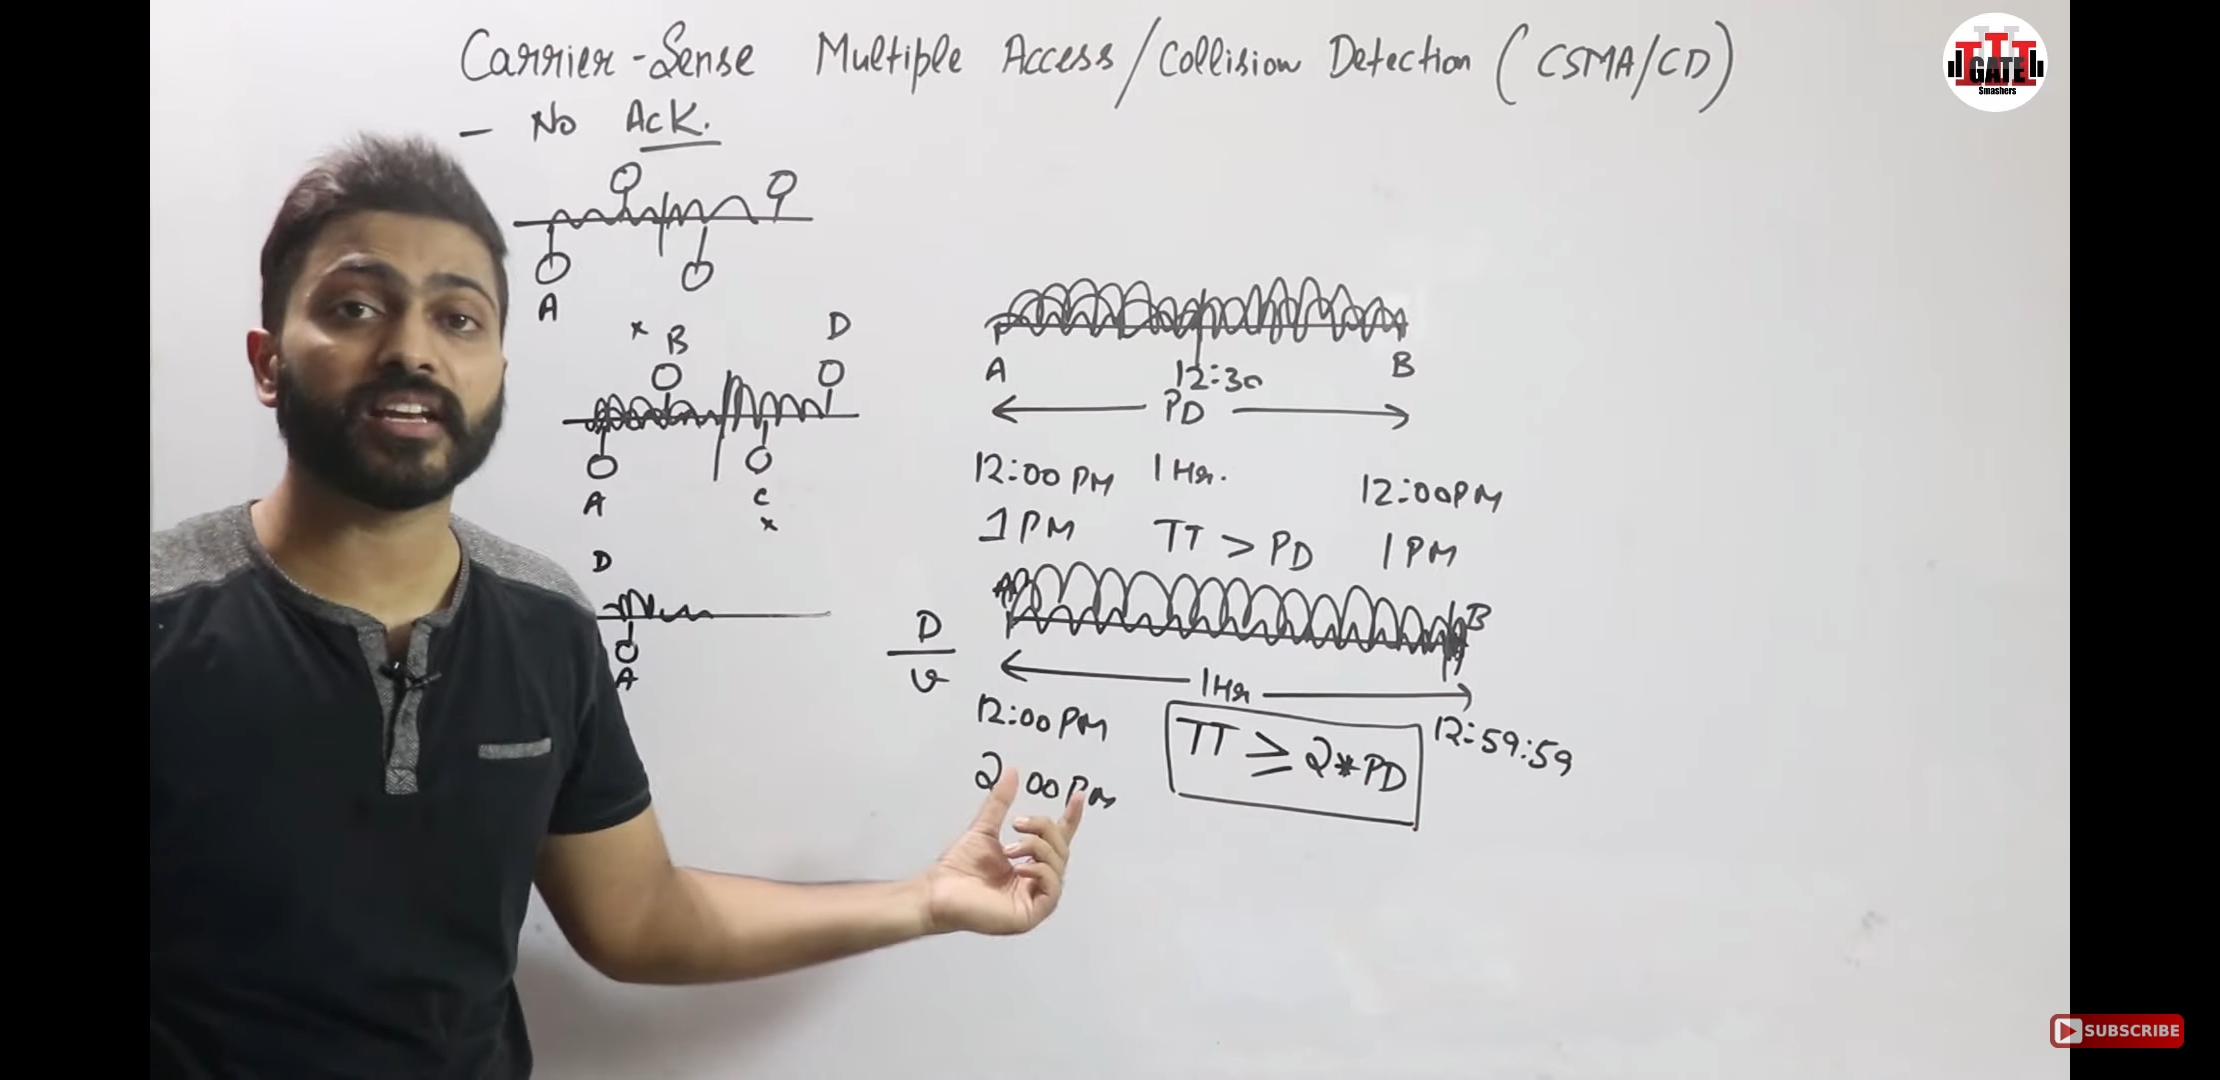 Carrier-Sense Multiple Access/Collision Detection (CSMA/CD)
- No Ack.
A
B
D
A
C
D
A
A
B
12:30
PD
12:00 PM
1 Hr.
12:00PM
1 PM
TT > PD
1 PM
A
B
D
v
1Hr
12:00 PM
12:59:59
2:00 PM
TT ≥ 2*PD
GATE
Smashers
SUBSCRIBE